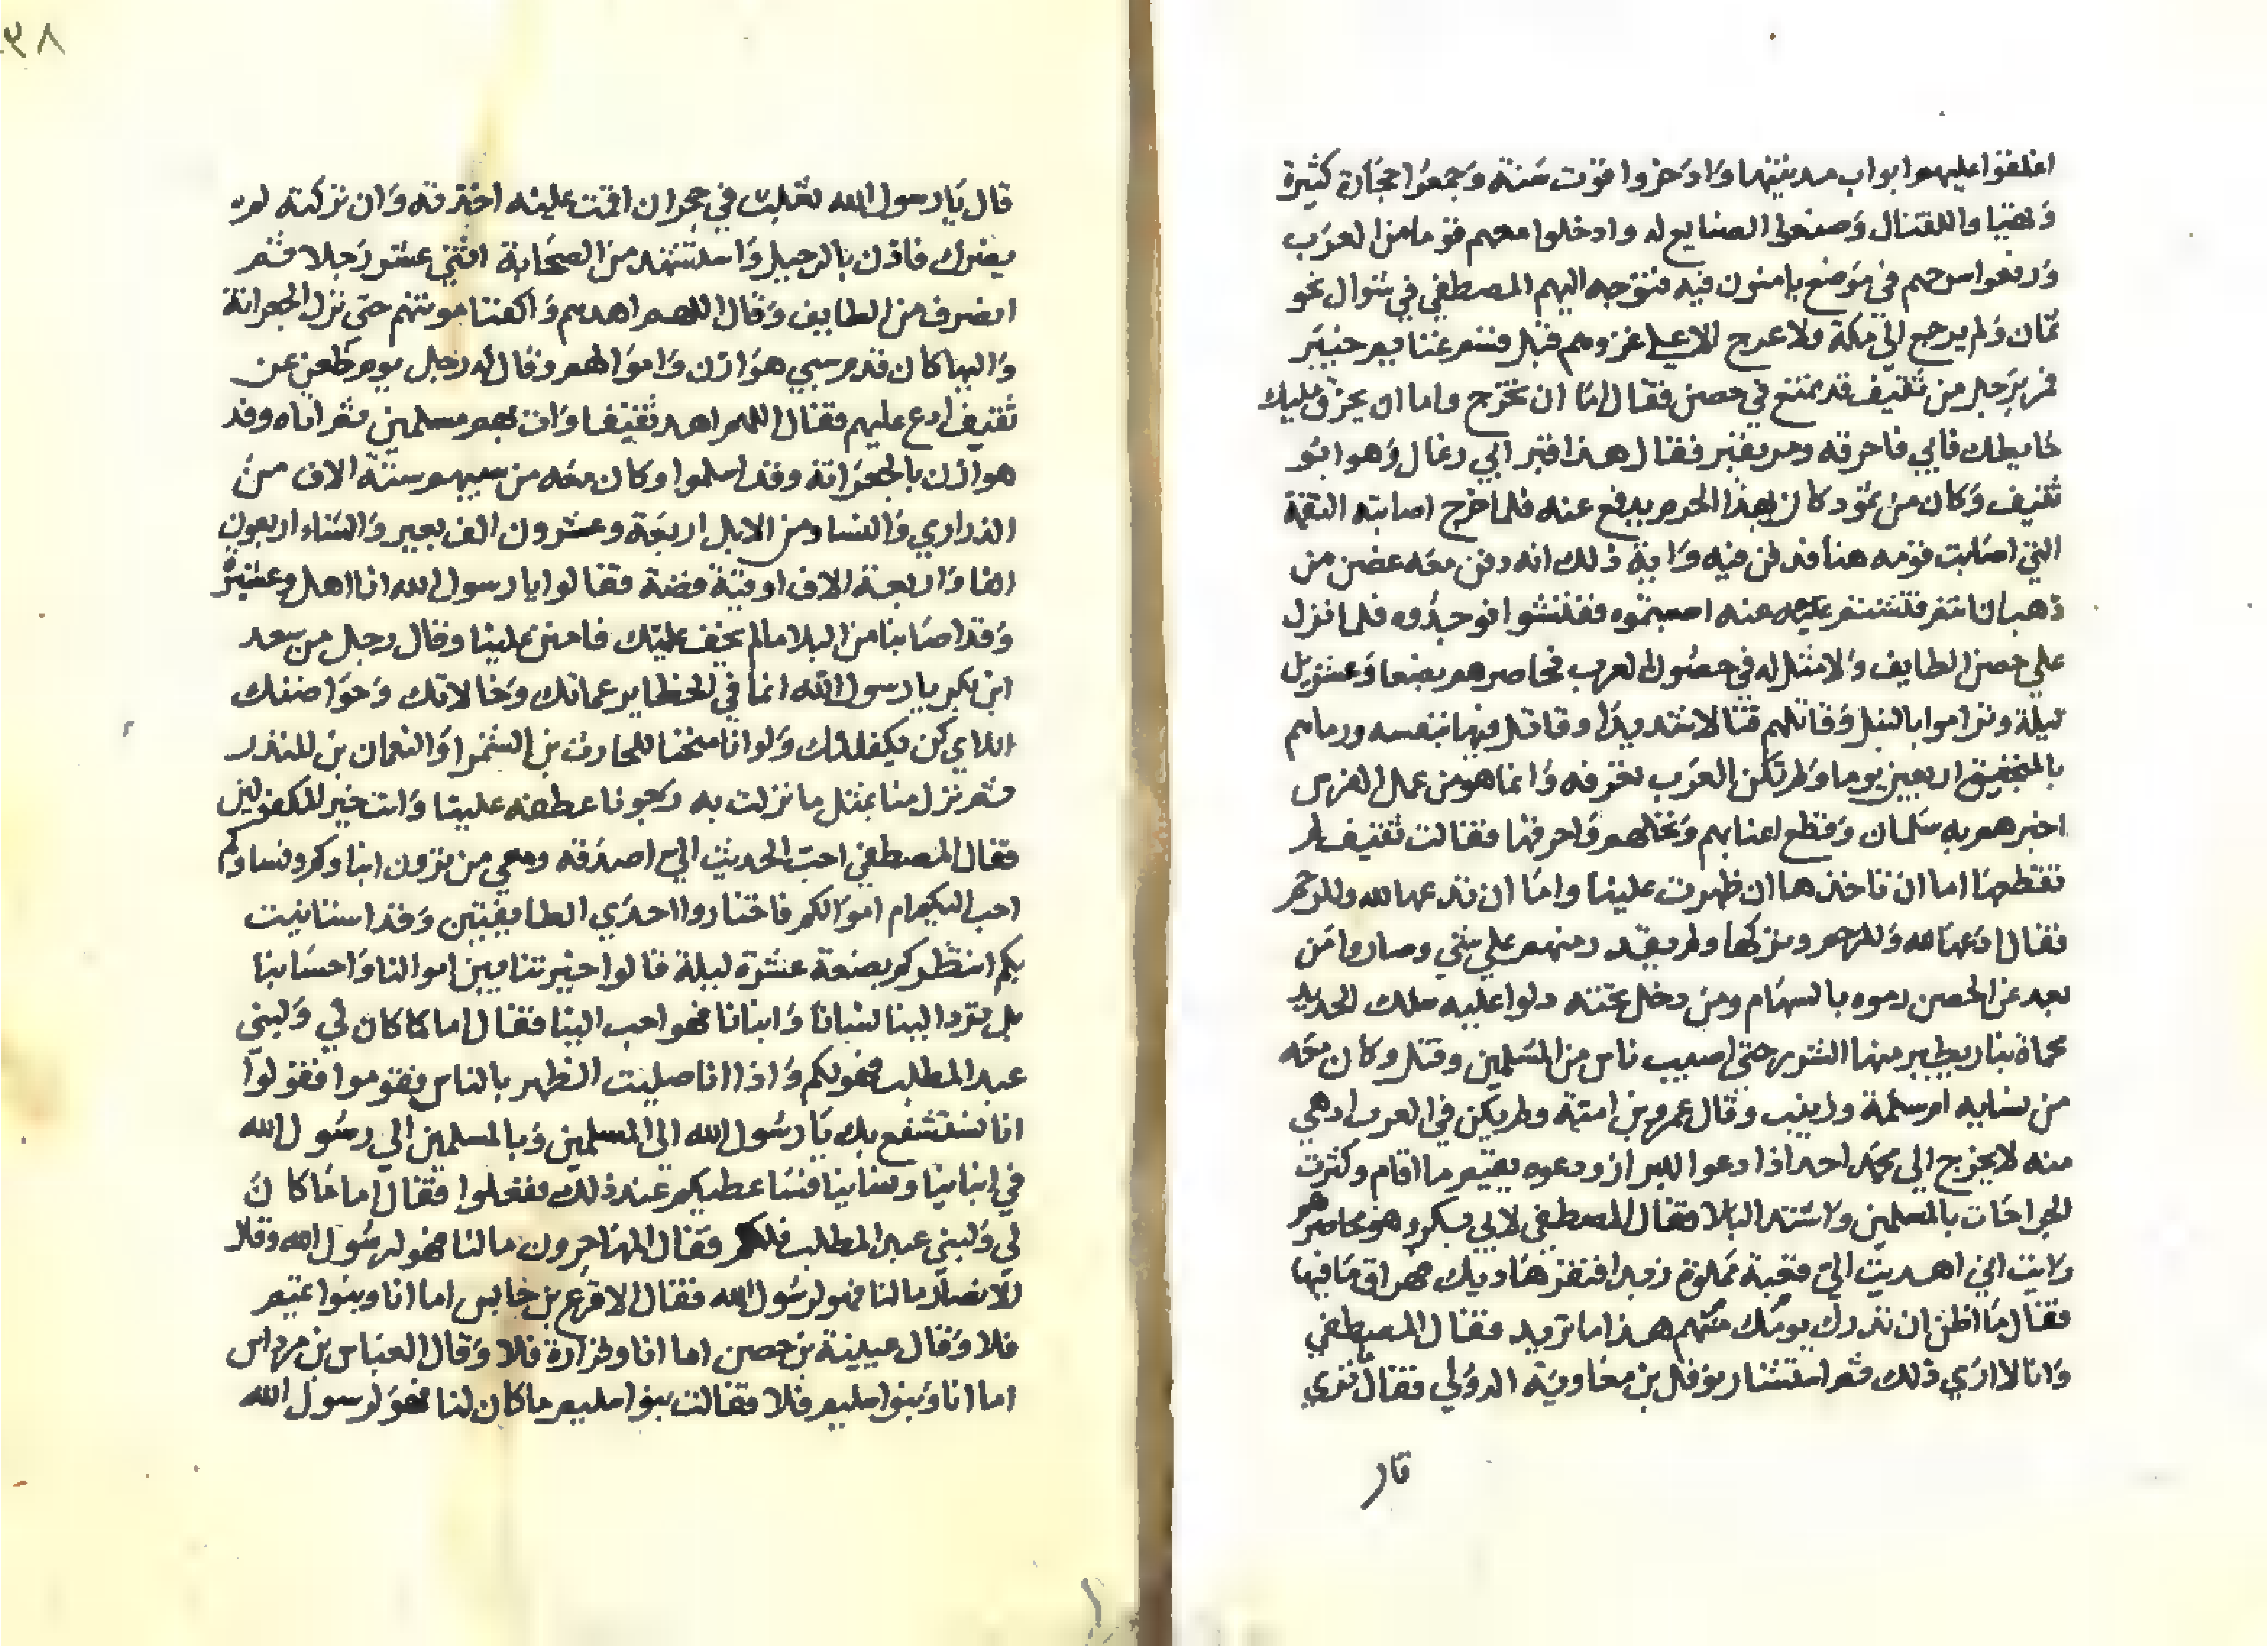 اغلقوا عليهم ابواب مدينتها وادخروا قوت سنة وجمعوا حجارة كثيرة
وتهيا واللقتال وصنعوا الصنايع له وادخلوا معهم قوما من العرب
ورفعوا سرحهم في موضع يامنون فيه فتوجه اليهم المصطفي في شوال نحو
ثمان ولم يرجع الي مكة ولا عرج الا علي غزوهم قبل قسم غنايم حنين
فمر برجل من ثقيف قد تمنع في حصن فقال اما ان تخرج واما ان يحرق عليك
حايطك فابي فاحرقه ومر بقبر فقال هذا قبر ابي رغال وهو ابو
ثقيف وكان من ثمود كان بهذا الحرم يدفع عنه فلما خرج اصابته النقمة
التي اصابت قومه هنا فدفن فيه واية ذلك انه دفن معه غصن من
ذهب ان انتم فتشتم عليه عنه اصبتموه ففتشوا فوجدوه فلما نزل
علي حصن الطايف ولا مثل له في حصون العرب فحاصرهم بضعا وعشرين
ليلة وتراموا بالنبل وقاتلهم قتالا شديدا وقاتل فيها بنفسه ورماهم
بالمنجنيق اربعين يوما ولم تكن العرب تعرفه وانما هو من عمل الفرس
اخبرهم به سلمان وقطع اعنابهم ونخلهم واحرقها فقالت ثقيف لم
تقطعها اما ان تاخذها ان ظهرت علينا واما ان تدعها لله وللرحم
فقال ادعها لله وللرحم وتركها ولم يقد منهم علي شي وصاروا من
بعد عن الحصن رموه بالسهام ومن دخل تحته دلوا عليه سلك الحديد
محماة بنار يطير منها الشرر حتي اصيب ناس من المسلمين وقتل وكان معه
من نسايه ام سلمة وزينب وقال عمرو بن امية ولم يكن في العرب ادهي
منه لا يخرج الي محمد احد اذا دعوا للبراز ودعوه يقيم ما اقام وكثرت
الجراحات بالمسلمين واشتد البلا فقال المصطفي لابي بكر وهو محاصرهم
رايت اني اهديت الي قعبة مملوة زبدا فنقرها ديك فهراق ما فيها
فقال ما اظن ان تدرك يومك منهم هذا ما تريد فقال المصطفي
وانا لا اري ذلك ثم استشار نوفل بن معاوية الدؤلي فقال تري
قال
٣٨
قال يا رسول الله ثعلب في جحر ان اقمت عليه اخذته وان تركته لم
يضرك فاذن بالرحيل واستشهد من الصحابة اثني عشر رجلا ثم
انصرف من الطايف وقال اللهم اهدهم واكفنا مونتهم حتي نزل الجعرانة
واليها كان قدم سبي هوازن واموالهم وقال له رجل يوم ظعن عن
ثقيف ادع عليهم فقال اللهم اهد ثقيفا وات بهم مسلمين ثم اتاه وفد
هوازن بالجعرانة وقد اسلموا وكان معه من سبيهم ستة الاف من
الذراري والنسا ومن الابل اربعة وعشرون الف بعير والشاء اربعون
الفا واربعة الاف اوقية فضة فقالوا يا رسول الله انا اهل وعشيرة
وقد اصابنا من البلا ما لم يخف عليك فامنن علينا وقال رجل من سعد
ابن بكر يا رسول الله انما في الحظاير عماتك وخالاتك وحواضنك
اللاي كن يكفلنك ولو انا ملحنا للحارث بن الشمر او النعمان بن المنذر
ثم نزل منا بمثل ما نزلت به رجونا عطفه علينا وانت خير المكفولين
فقال المصطفي احب الحديث الي اصدقه ومعي من ترون ابناوكم ونساوكم
احب اليكم ام اموالكم فاختاروا احدي الطايفتين وقد استانيت
بكم انتظركم بضعة عشرة ليلة قالوا خيرتنا بين اموالنا واحسابنا
بل ترد الينا نسانا وابنانا فهو احب الينا فقال اما ما كان لي ولبني
عبد المطلب فهو لكم واذا انا صليت الظهر بالناس فقوموا فقولوا
انا نستشفع بك يا رسول الله الي المسلمين وبالمسلمين الي رسول الله
في ابناينا ونساينا فساعطيكم عند ذلك ففعلوا فقال اما ما كان
لي ولبني عبد المطلب فلكم فقال المهاجرون ما لنا فهو لرسول الله وقال
الانصار ما لنا فهو لرسول الله فقال الاقرع بن حابس اما انا وبنوا تميم
فلا وقال عيينة بن حصن اما انا وفزارة فلا وقال العباس بن مرداس
اما انا وبنوا سليم فلا فقالت بنوا سليم ما كان لنا فهو لرسول الله